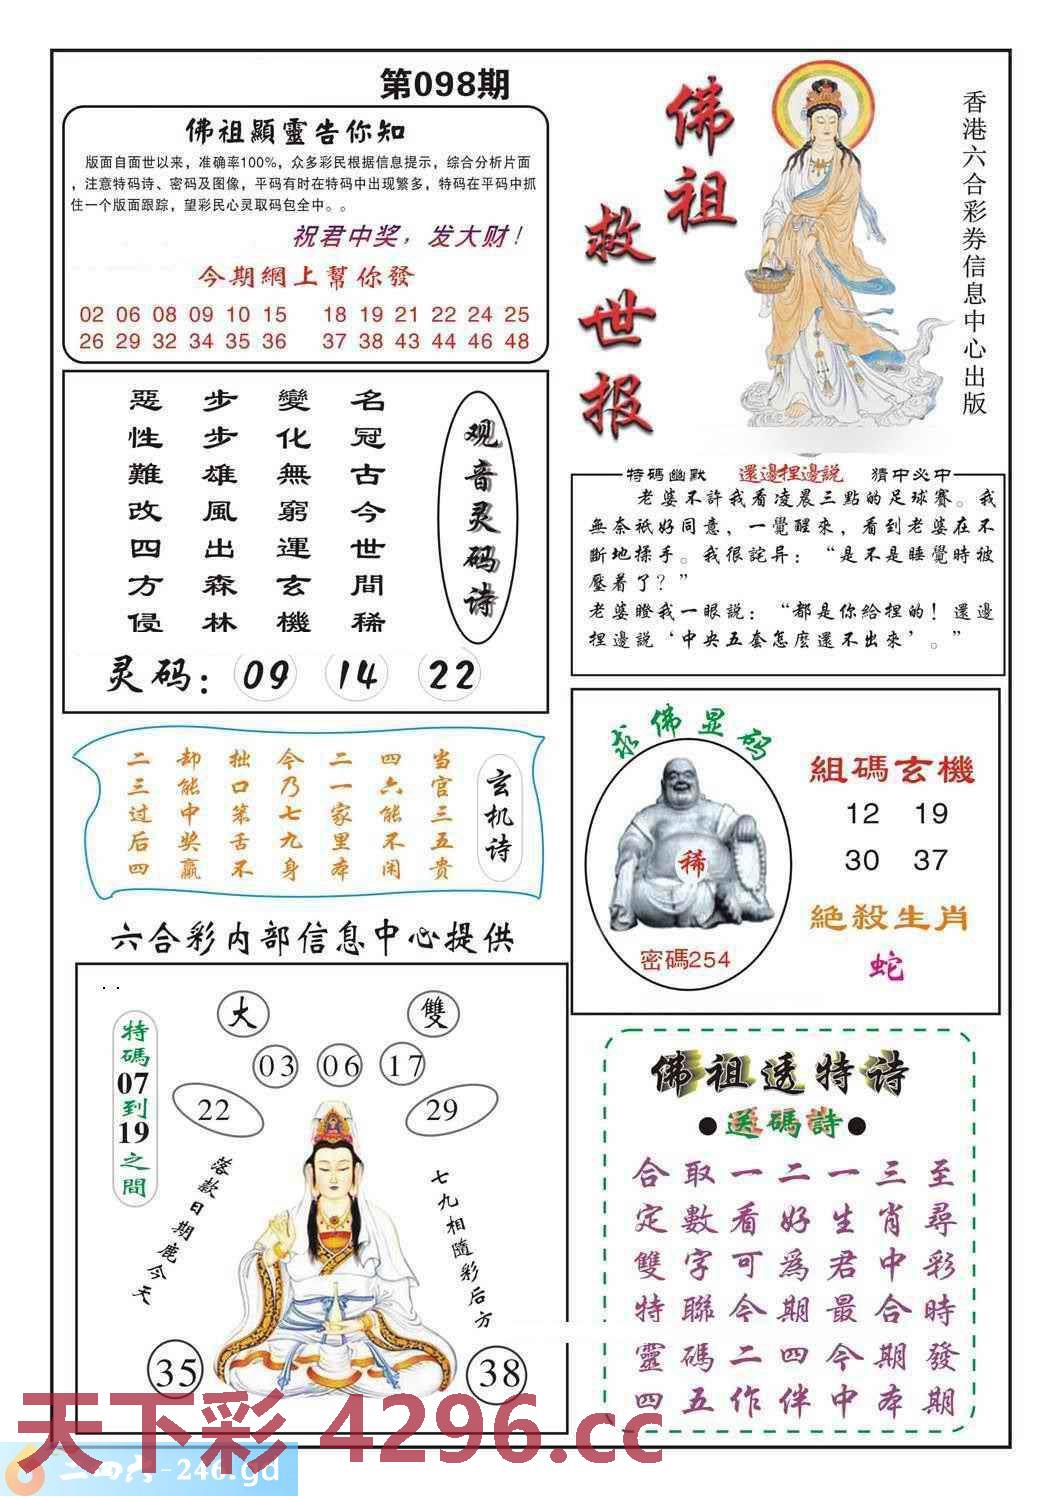 第098期
佛祖顯靈告你知
版面自面世以来，准确率100%，众多彩民根据信息提示，综合分析片面
，注意特码诗、密码及图像，平码有时在特码中出现繁多，特码在平码中抓
住一个版面跟踪，望彩民心灵取码包全中。。
祝君中奖，发大财！
今期網上幫你發
02 06 08 09 10 15 18 19 21 22 24 25
26 29 32 34 35 36 37 38 43 44 46 48
佛祖
救世报
香港六合彩券信息中心出版
观音灵码诗
名冠古今世間稀
變化無窮運玄機
步步雄風出森林
惡性難改四方侵
灵码：09 14 22
特碼幽默 還邊捏邊説 猜中必中
老婆不許我看凌晨三點的足球賽。我
無奈祇好同意，一覺醒來，看到老婆在不
斷地揉手。我很詫异：“是不是睡覺時被
壓着了？”
老婆瞪我一眼説：“都是你給捏的！還邊
捏邊説‘中央五套怎麽還不出來’。”
玄机诗
当官三五贵
四六能不闲
二一家里本
今乃七九身
拙口笨舌不
却能中奖赢
二三过后四
求佛显码
稀
密碼254
組碼玄機
12 19
30 37
絶殺生肖
蛇
六合彩内部信息中心提供
特碼07到19之間
大 雙
03 06 17
22 29
落款日期鹿今天
七九相隨彩后方
35 38
佛祖透特诗
●送碼詩●
至尋彩時發期
三肖中合期本
一生君最今中
二好爲期四伴
一看可今二作
取數字聯碼五
合定雙特靈四
天下彩 4296.cc
二四六-246.gd